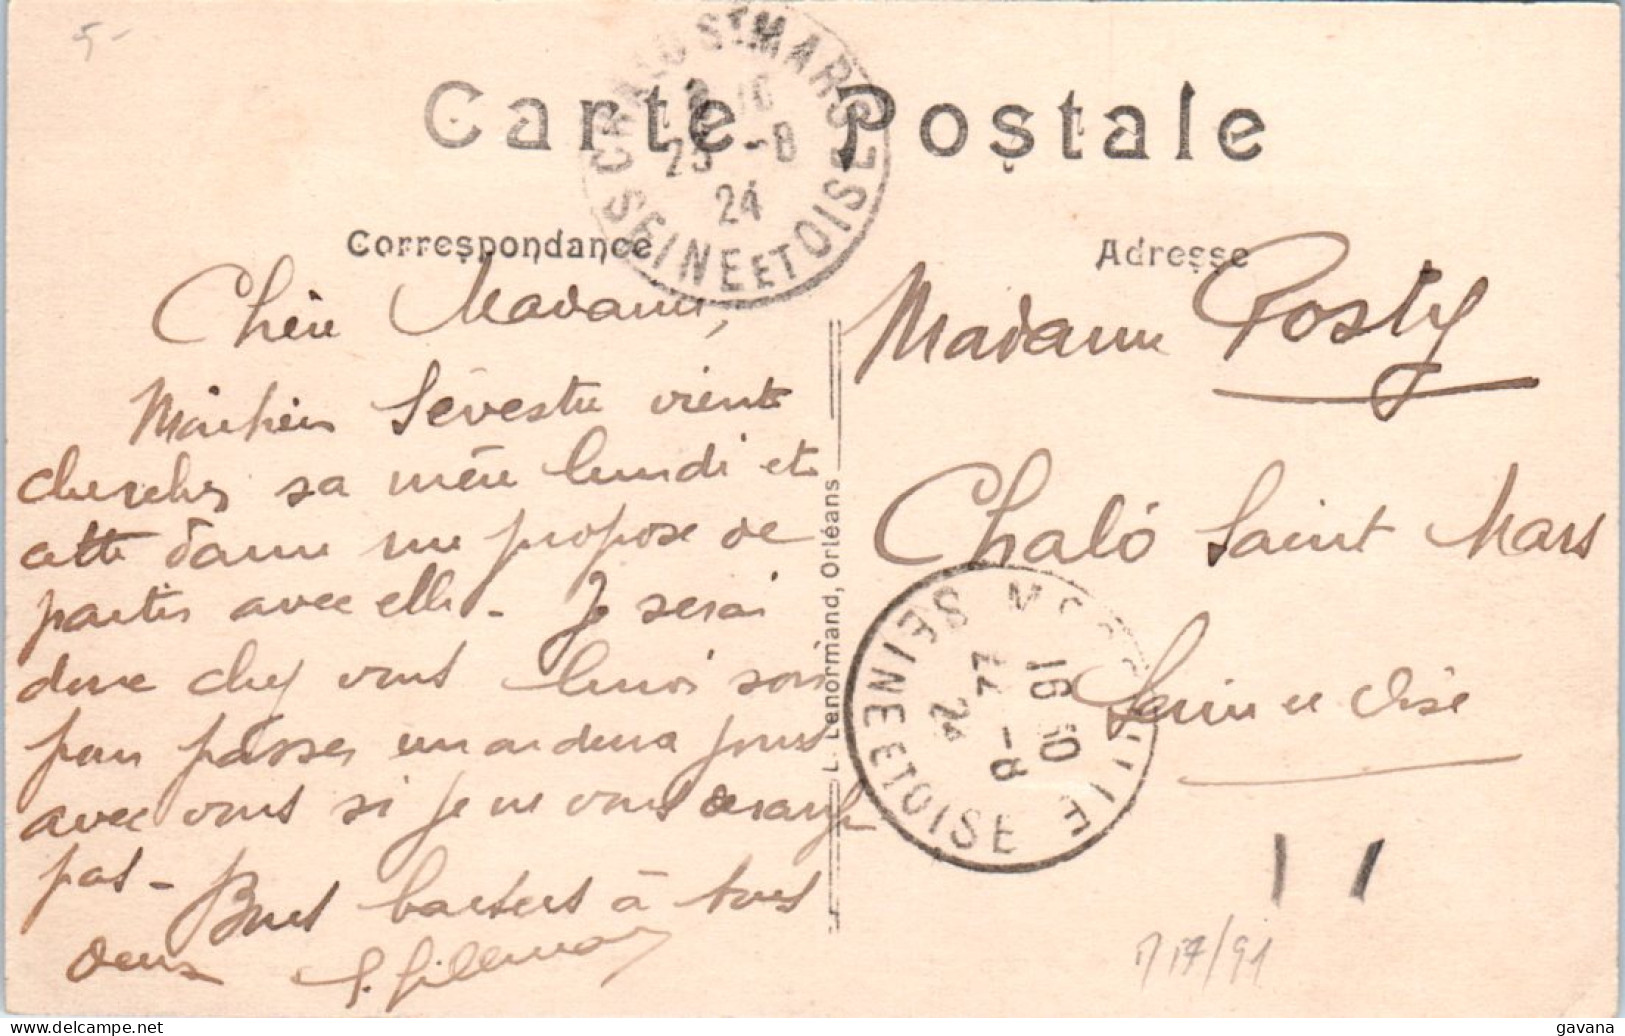 5-
Carte Postale
CHALO ST MARS
SEINE ET OISE
25 -8
24
Correspondance
Adresse
Chère Madame,
Sévestre vient
chercher sa mère lundi et
cette dame me propose de
partir avec elle - Je serai
donc chez vous lundi soir
pour passer un ou deux jours
avec vous si je ne vous dérange
pas - Bons baisers à tous
deux
L. Lenormand, Orléans
Madame Posty
Chalô Saint Mars
Seine et Oise
SEINE ET OISE
16 30
-8
24